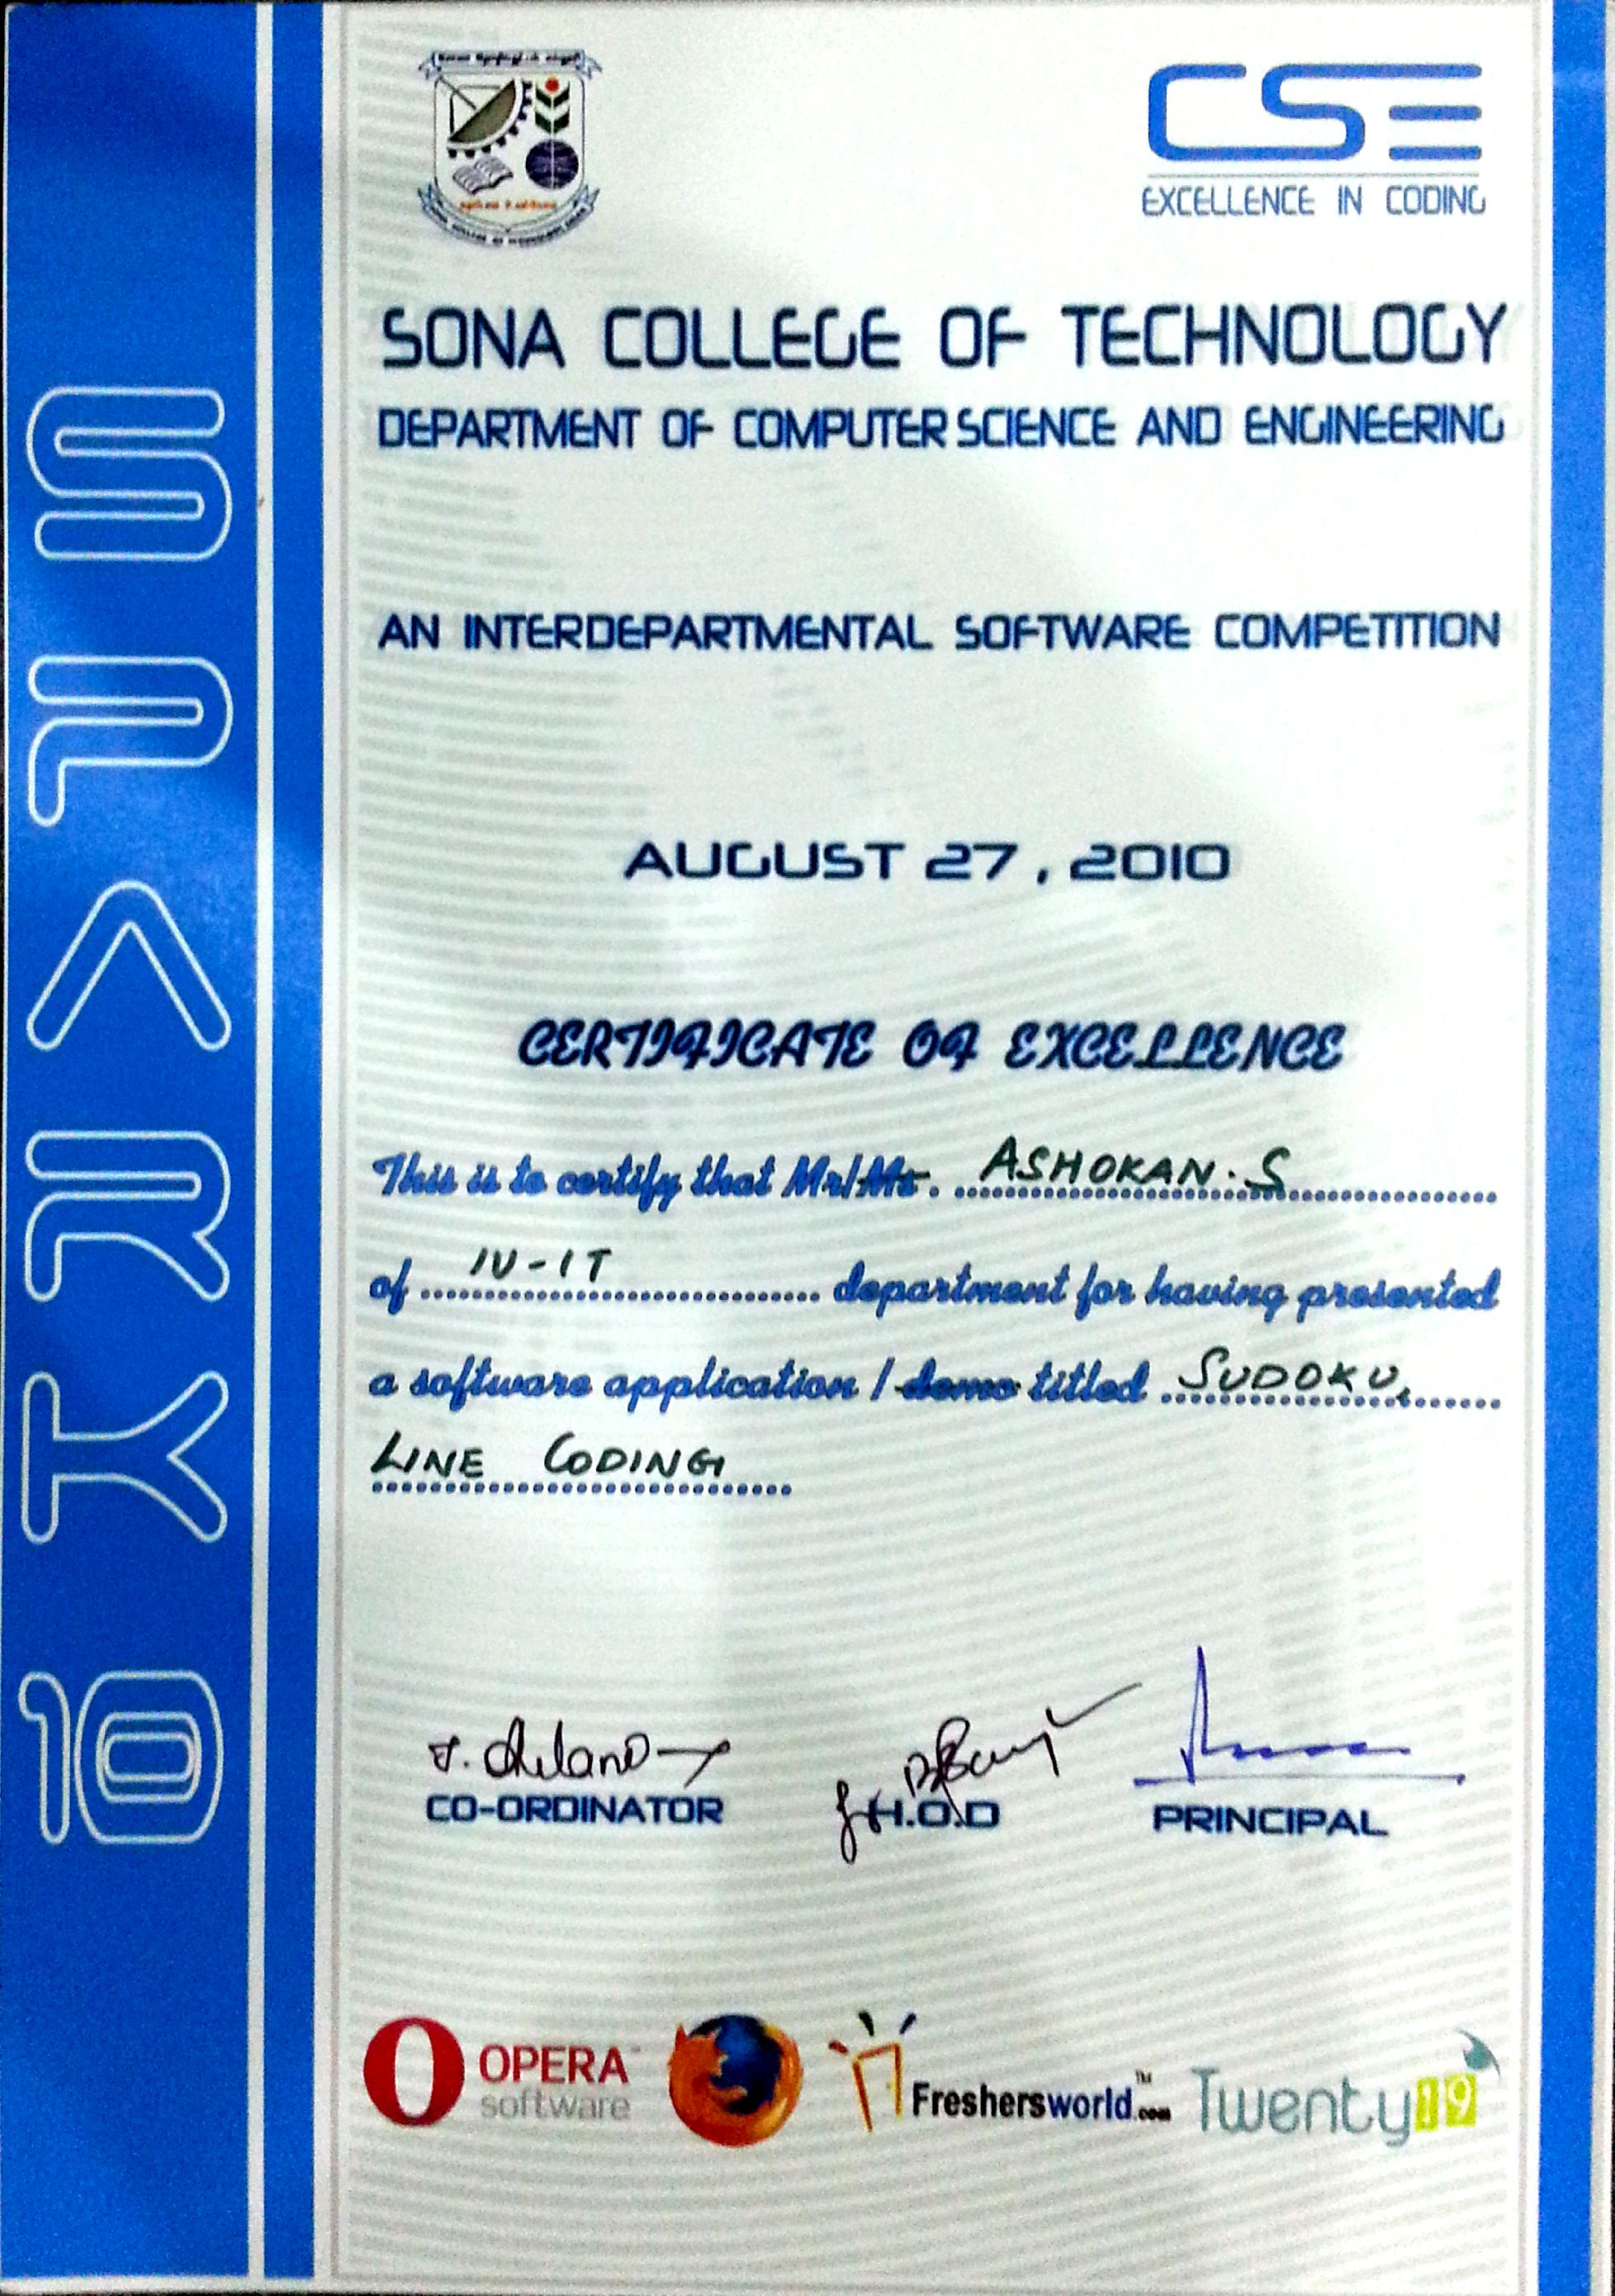 CSE
EXCELLENCE IN CODING
SONA COLLEGE OF TECHNOLOGY
DEPARTMENT OF COMPUTER SCIENCE AND ENGINEERING
AN INTERDEPARTMENTAL SOFTWARE COMPETITION
AUGUST 27, 2010
CERTIFICATE OF EXCELLENCE
This is to certify that Mr/Ms. ASHOKAN.S
of IV-IT department for having presented
a software application / demo titled SUDOKU,
LINE CODING
CO-ORDINATOR H.O.D PRINCIPAL
OPERA software
Freshersworld.com
Twenty19
SPARK 10